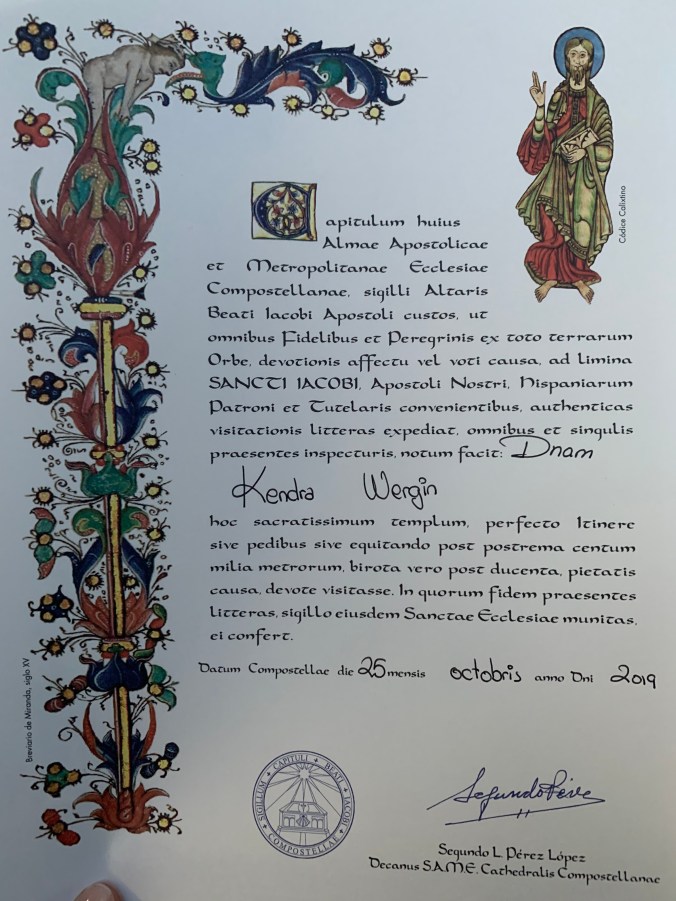 Códice Calixtino
Capitulum huius
Almae Apostolicae
et Metropolitanae Ecclesiae
Compostellanae, sigilli Altaris
Beati Iacobi Apostoli custos, ut
omnibus Fidelibus et Peregrinis ex toto terrarum
Orbe, devotionis affectu vel voti causa, ad limina
SANCTI IACOBI, Apostoli Nostri, Hispaniarum
Patroni et Tutelaris convenientibus, authenticas
visitationis litteras expediat, omnibus et singulis
praesentes inspecturis, notum facit: Dnam
Kendra Wergin
hoc sacratissimum templum, perfecto Itinere
sive pedibus sive equitando post postrema centum
milia metrorum, birota vero post ducenta, pietatis
causa, devote visitasse. In quorum fidem praesentes
litteras, sigillo eiusdem Sanctae Ecclesiae munitas,
ei confert.
Datum Compostellae die 25 mensis octobris anno Dni 2019
Breviario de Miranda, siglo XV
SIGILLUM CAPITULI BEATI IACOBI COMPOSTELLAE
Segundo Pérez
Segundo L. Pérez López
Decanus S.A.M.E. Cathedralis Compostellanae